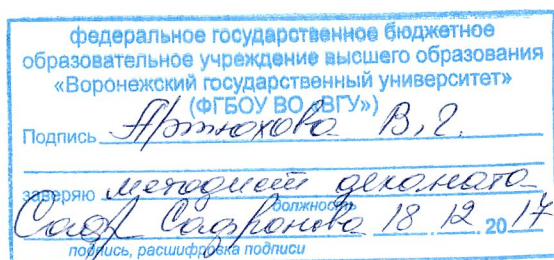 федеральное государственное бюджетное
образовательное учреждение высшего образования
«Воронежский государственный университет»
(ФГБОУ ВО «ВГУ»)
Подпись Артюхова В.Г.
заверяю методист деканата
должность
Сафр Сафронова 18.12.2017
подпись, расшифровка подписи